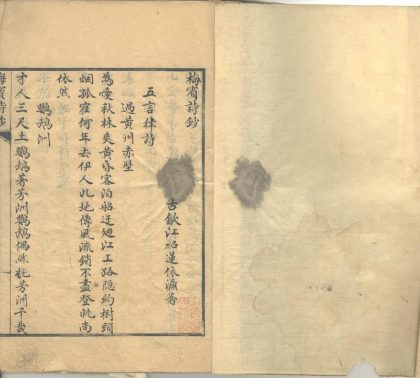 梅賓詩鈔
古歙江紹蓮依濂著
五言律詩
過黃州赤壁
為愛秋林爽黃昏客泊船迂迴江上路隱約樹頭
烟孤寉何年去伊人此地傳風流銷不盡登眺尚
依然
鸚鵡洲
才人三尺土鸚鵡著芳洲鸚鵡偶然托芳洲千載
梅賓詩鈔